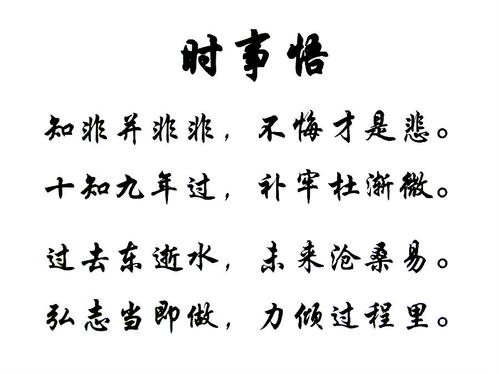 时事悟
知非并非非，不悔才是悲。
十知九年过，补牢杜渐微。
过去东逝水，未来沧桑易。
弘志当即做，力倾过程里。